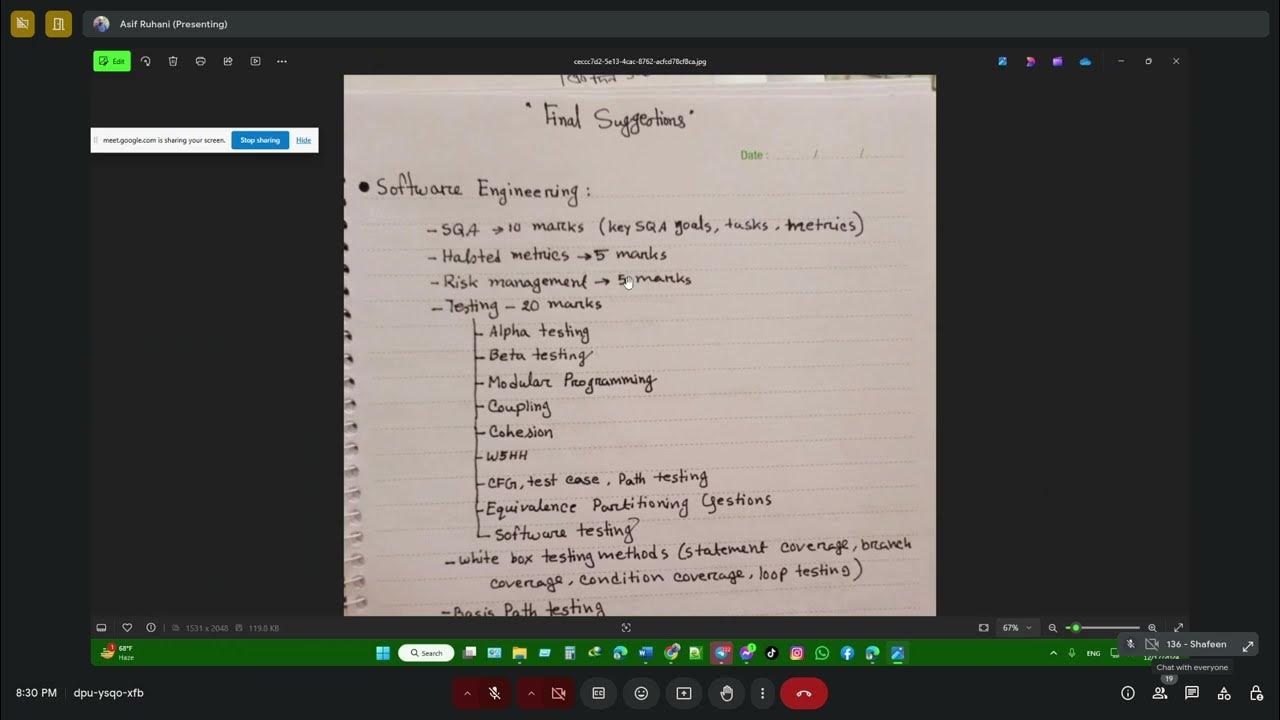 Asif Ruhani (Presenting)
Edit
ceccc7d2-5e13-4cac-8762-acfcd78cf8ca.jpg
"Final Suggestions"
meet.google.com is sharing your screen.
Stop sharing
Hide
Date : / /
Software Engineering :
- SQA → 10 marks (key SQA goals, tasks, metrics)
- Halsted metrics → 5 marks
- Risk management → 5 marks
- Testing - 20 marks
- Alpha testing
- Beta testing
- Modular Programming
- Coupling
- Cohesion
- W5HH
- CFG, test case, Path testing
- Equivalence Partitioning
- Software testing
- White box testing methods (statement coverage, branch
coverage, condition coverage, loop testing)
- Basis Path testing
1531 x 2048
119.8 KB
67%
68°F
Haze
Search
ENG
136 - Shafeen
Chat with everyone
19
8:30 PM
dpu-ysqo-xfb